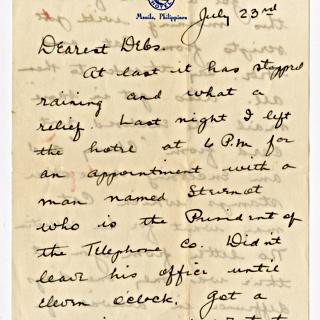 Manila, Philippines
July 23rd
Dearest Debs.
At last it has stopped
raining and what a
relief. Last night I left
the hotel at 6 P.M for
an appointment with a
man named Stevenot
who is the President of
the Telephone Co. Didn't
leave his office until
eleven o'clock. Got a